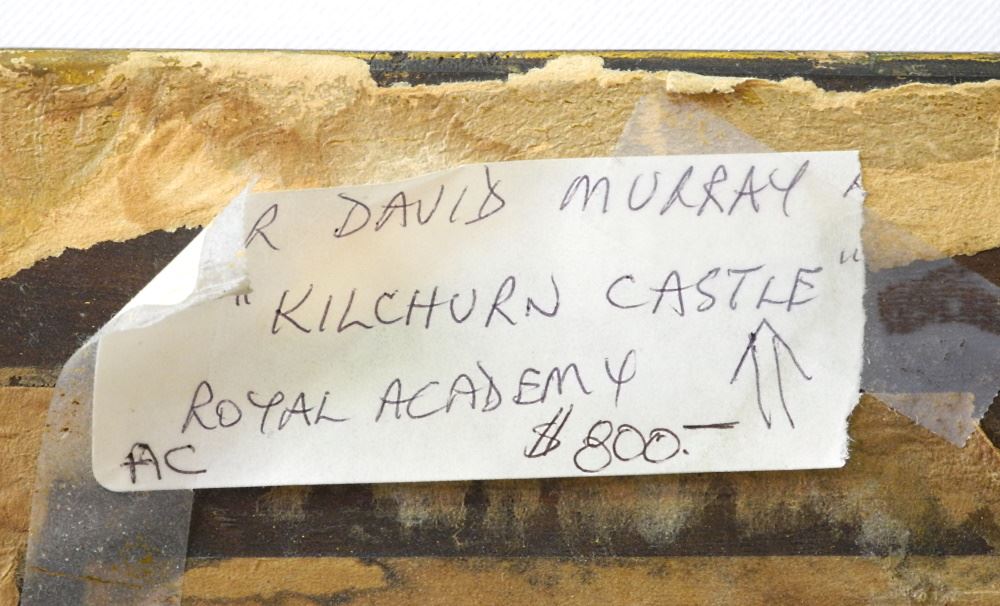 R DAVID MURRAY
"KILCHURN CASTLE"
ROYAL ACADEMY
AC $800.—